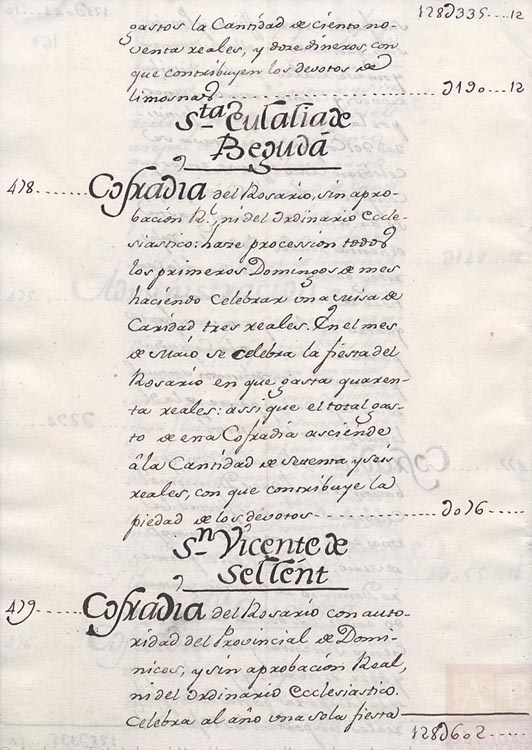 128ϑ335....12
gastos la Cantidad de ciento no-
venta reales, y doze dineros, con
que contribuyen los devotos de
limosnas ........ ϑ190...12
Sta Eulalia de
Begudá
478...... Cofradia del Rosario, sin apro-
bación Rl, ni del Ordinario Eccle-
siastico: haze procession todos
los primeros Domingos de mes
haciendo Celebrar una missa de
Caridad tres reales. En el mes
de Maio se Celebra la fiesta del
Rosario en que gasta quaren-
ta reales: assi que el total gas-
to de esta Cofradia asciende
â la Cantidad de setenta y seis
reales, con que contribuye la
piedad de los devotos ------------ ϑ076....
Sn Vicente de
Sellent
479.... Cofradia del Rosario con auto-
ridad del Provincial de Domi-
nicos, y sin aprobación Real,
ni del Ordinario Ecclesiastico.
Celebra al año una sola fiesta
128ϑ602.....